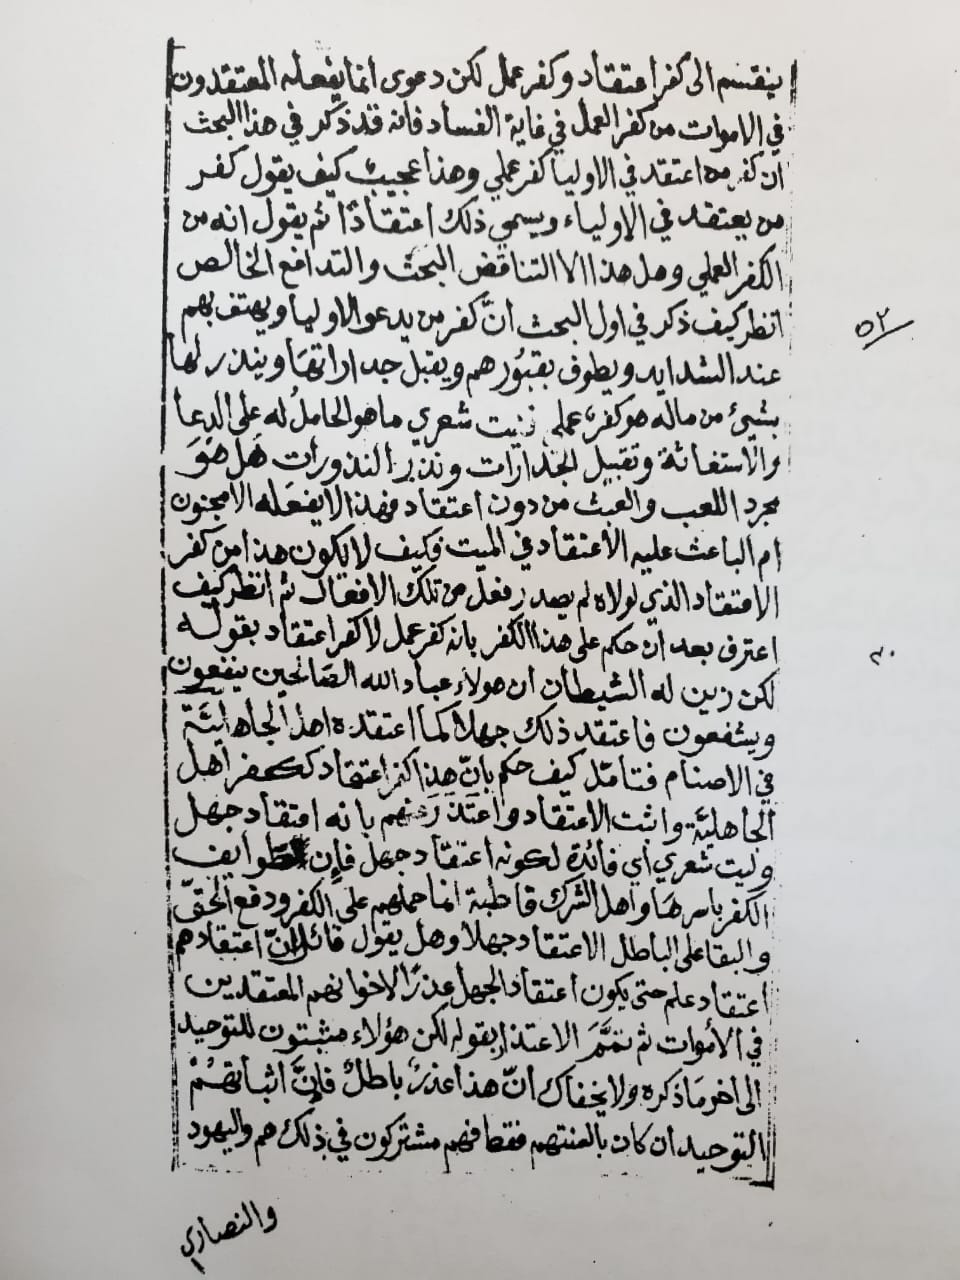 ينقسم الى كفر اعتقاد وكفر عمل لكن دعوى انما يفعله المعتقدون
في الاموات من كفر العمل في غاية الفساد فانه قد ذكر في هذا البحث
ان كفر من اعتقد في الاوليا كفر عملي وهذا عجيب كيف يقول كفر
من يعتقد في الاولياء ويسمي ذلك اعتقادًا ثم يقول انه من
الكفر العملي وهل هذا الا التناقض البحث والتدافع الخالص
انظر كيف ذكر في اول البحث أنّ كفر من يدعو الاوليا ويهتف بهم
عند الشدايد ويطوف بقبُورهم ويقبل جداراتهَا وينذر لها
بشيئ من ماله هو كفر عملي ليت شعري ما هو الحاملُ له على الدعا
والاستغاثة وتقبيل الجدارات ونذر النذورات هَل هوَ
مجرد اللعب والعبث من دون اعتقاد فهذا لا يفعَله الا مجنون
ام الباعث عليه الاعتقاد في الميت فكيف لا يكون هذا من كفر
الاعتقاد الذي لولاه لم يصدر فعل من تلك الافعال ثم انظر كيف
اعترف بعد ان حكم على هذا الكفر بانه كفر عمل لا كفر اعتقاد بقوله
لكن زين له الشيطان ان هولاء عباد الله الصَالحين ينفعون
ويشفعون فاعتقد ذلك جهلا كما اعتقده اهل الجاهليّة
في الاصنام فتامّل كيف حكم بانّ هذا كفر اعتقاد ككفر اهل
الجاهليّة واثبت الاعتقاد واعتَذَرَ عنهم بانه اعتقاد جهل
وليت شعري اي فائدة لكونه اعتقاد جهل فإن طوايف
الكفر باسرهَا واهل الشرك قاطبة انما حملهم على الكفر ودفع الحقّ
والبقا على الباطل الاعتقاد جهلا وهل يقول قائل انّ اعتقادهم
اعتقاد علم حتى يكون اعتقاد الجهل عذرًا لاخوانهم المعتقدين
في الأموات ثم تمَّمَ الاعتذار بقوله لكن هؤلاء مثبتون للتوحيد
الى اخر مَا ذكره ولا يخفاك انّ هذا عذرٌ باطلٌ فإنَّ اثباتهُمْ
التوحيد ان كان بالسنتهم فقط فهم مشتركون في ذلك هم واليهود
والنصاري
٥٢